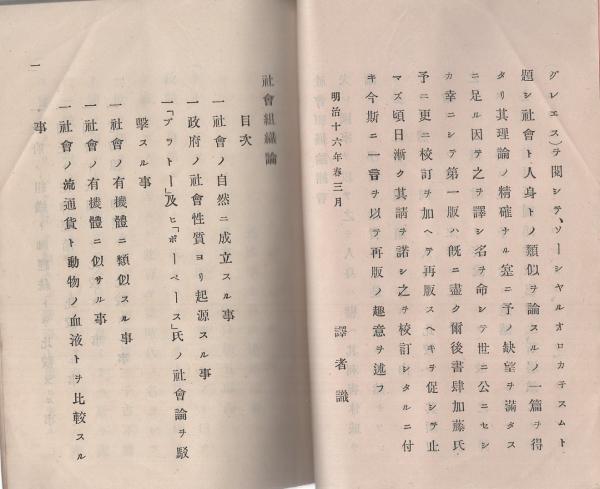 グレエス)ヲ閲シテ、ソーシヤルオロカテスムト
題シ社會ト人身トノ類似ヲ論スルノ一篇ヲ得
タリ其理論ノ精確ナル寔ニ予ノ缺望ヲ滿タス
ニ足ル因テ之ヲ譯シ名ヲ命シテ世ニ公ニセシ
カ幸ニシテ第一版ハ旣ニ盡ク爾後書肆加藤氏
予ニ更ニ校訂ヲ加ヘテ再版スヘキヲ促シテ止
マズ頃日漸ク其請ヲ諾シ之ヲ校訂シタルニ付
キ今斯ニ一言ヲ以テ再版ノ趣意ヲ述フ
明治十六年春三月
譯者識
社會組織論
目次
一社會ノ自然ニ成立スル事
一政府ノ社會性質ヨリ起源スル事
一「プラトー」及ヒ「ホーベース」氏ノ社會論ヲ駁
擊スル事
一社會ノ有機體ニ類似スル事
一社會ノ有機體ニ似サル事
一社會ノ流通貨ト動物ノ血液トヲ比較スル
事
一